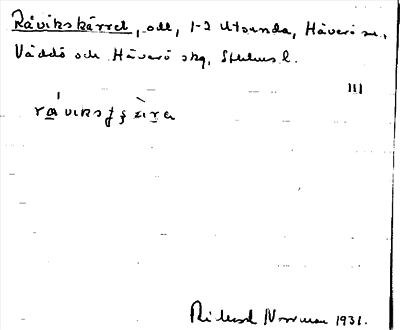 Råvikskärret, odl, 1-2 Utsunda, Häverö sn,
Väddö och Häverö skg, Sthlms l.
III
Rikard Norrman 1931.